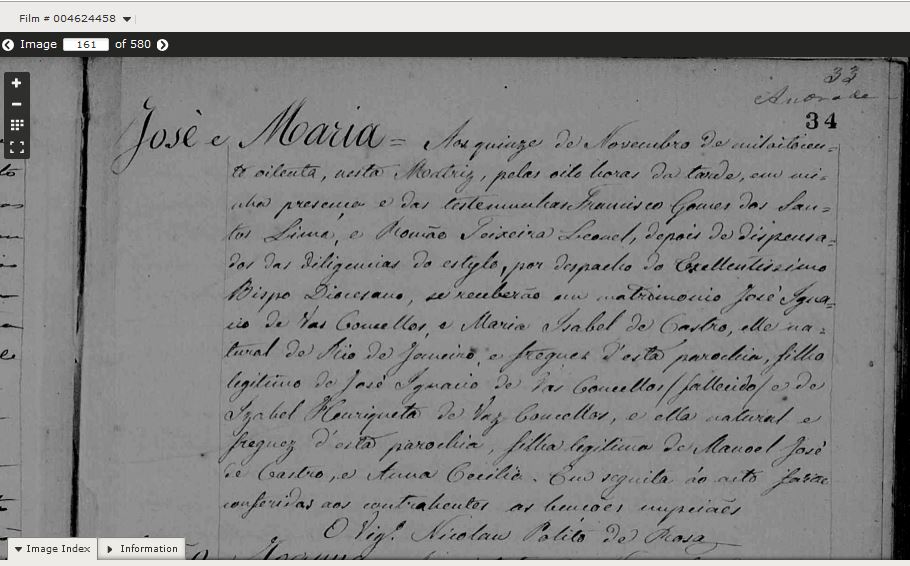 Film # 004624458
Image 161 of 580
33
Andrade
34
Josè e Maria = Aos quinze de Novembro de mil oitocen=
to oitenta, nesta Matriz, pelas oito horas da tarde, em mi=
nha presença e das testemunhas Francisco Gomes dos San=
tos Lima, e Romão Teixeira Leonel, depois de dispensa=
dos das diligencias do estylo, por despacho do Excellentissimo
Bispo Diocesano, se receberão em matrimonio José Igna=
cio de Vas Concellos, e Maria Isabel de Castro, elle na=
tural do Rio de Janeiro e freguez d'esta parochia, filho
legitimo de José Ignacio de Vas Concellos /fallecido/ e de
Izabel Henriqueta de Vaz Concellos, e ella natural e
freguez d'esta parochia, filha legitima de Manoel José
de Castro, e Anna Cecilia. Em seguita áo acto
conferidas aos contrahentes as bençoes nupciaẽs
O Vigº. Nicolau Polito de Rosa
Image Index
Information